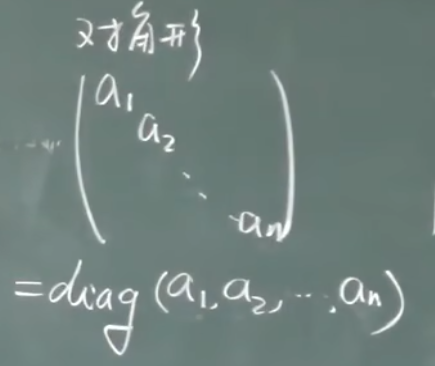 对角形
a₁
a₂
⋱
aₙ
=diag(a₁,a₂,…,aₙ)